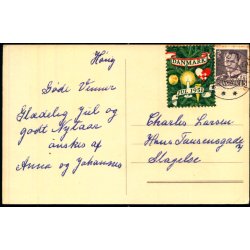 Høng
Gode Venner
Glædelig Jul og
godt Nytaar
ønskes af
Anna og Johannes
DANMARK
JUL 1951
Charles Larsen
Hans Tausensgade
Slagelse